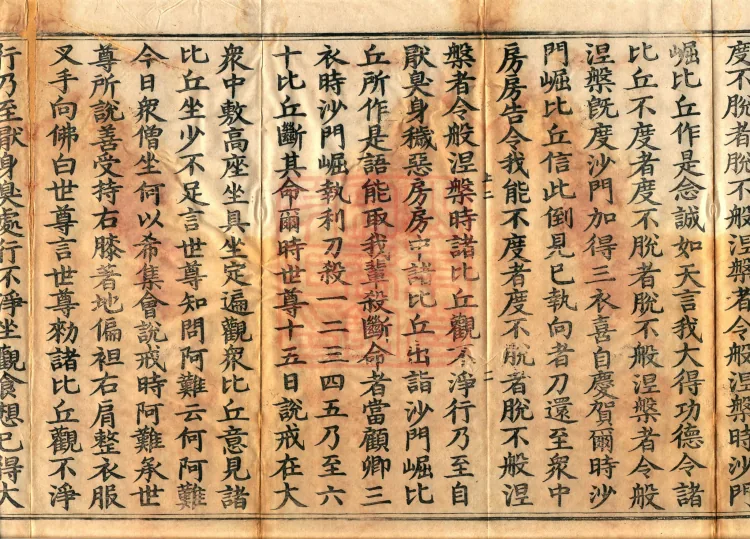 度不脫者脫不般涅槃者令般涅槃時沙門
崛比丘作是念誠如天言我大得功德令諸
比丘不度者度不脫者脫不般涅槃者令般
涅槃旣度沙門加得三衣喜自慶賀爾時沙
門崛比丘信此倒見已執向者刀還至衆中
房房告令我能不度者度不脫者脫不般涅
槃者令般涅槃時諸比丘觀不淨行乃至自
厭臭身穢惡房房中諸比丘出詣沙門崛比
丘所作是語能取我輩殺斷命者當顧卿三
衣時沙門崛執利刀殺一二三四五乃至六
十比丘斷其命爾時世尊十五日說戒在大
衆中敷高座坐具坐定遍觀衆比丘意見諸
比丘坐少不足言世尊知問阿難云何阿難
今日衆僧坐何以希集會說戒時阿難承世
尊所說善受持右膝著地偏袒右肩整衣服
叉手向佛白世尊言世尊勑諸比丘觀不淨
行乃至厭身臭處行不淨坐觀食想已得大